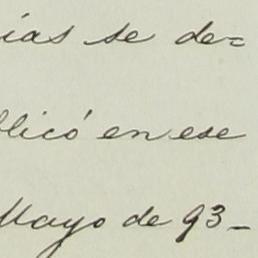 ias se de=
blicó en ese
Mayo de 93_